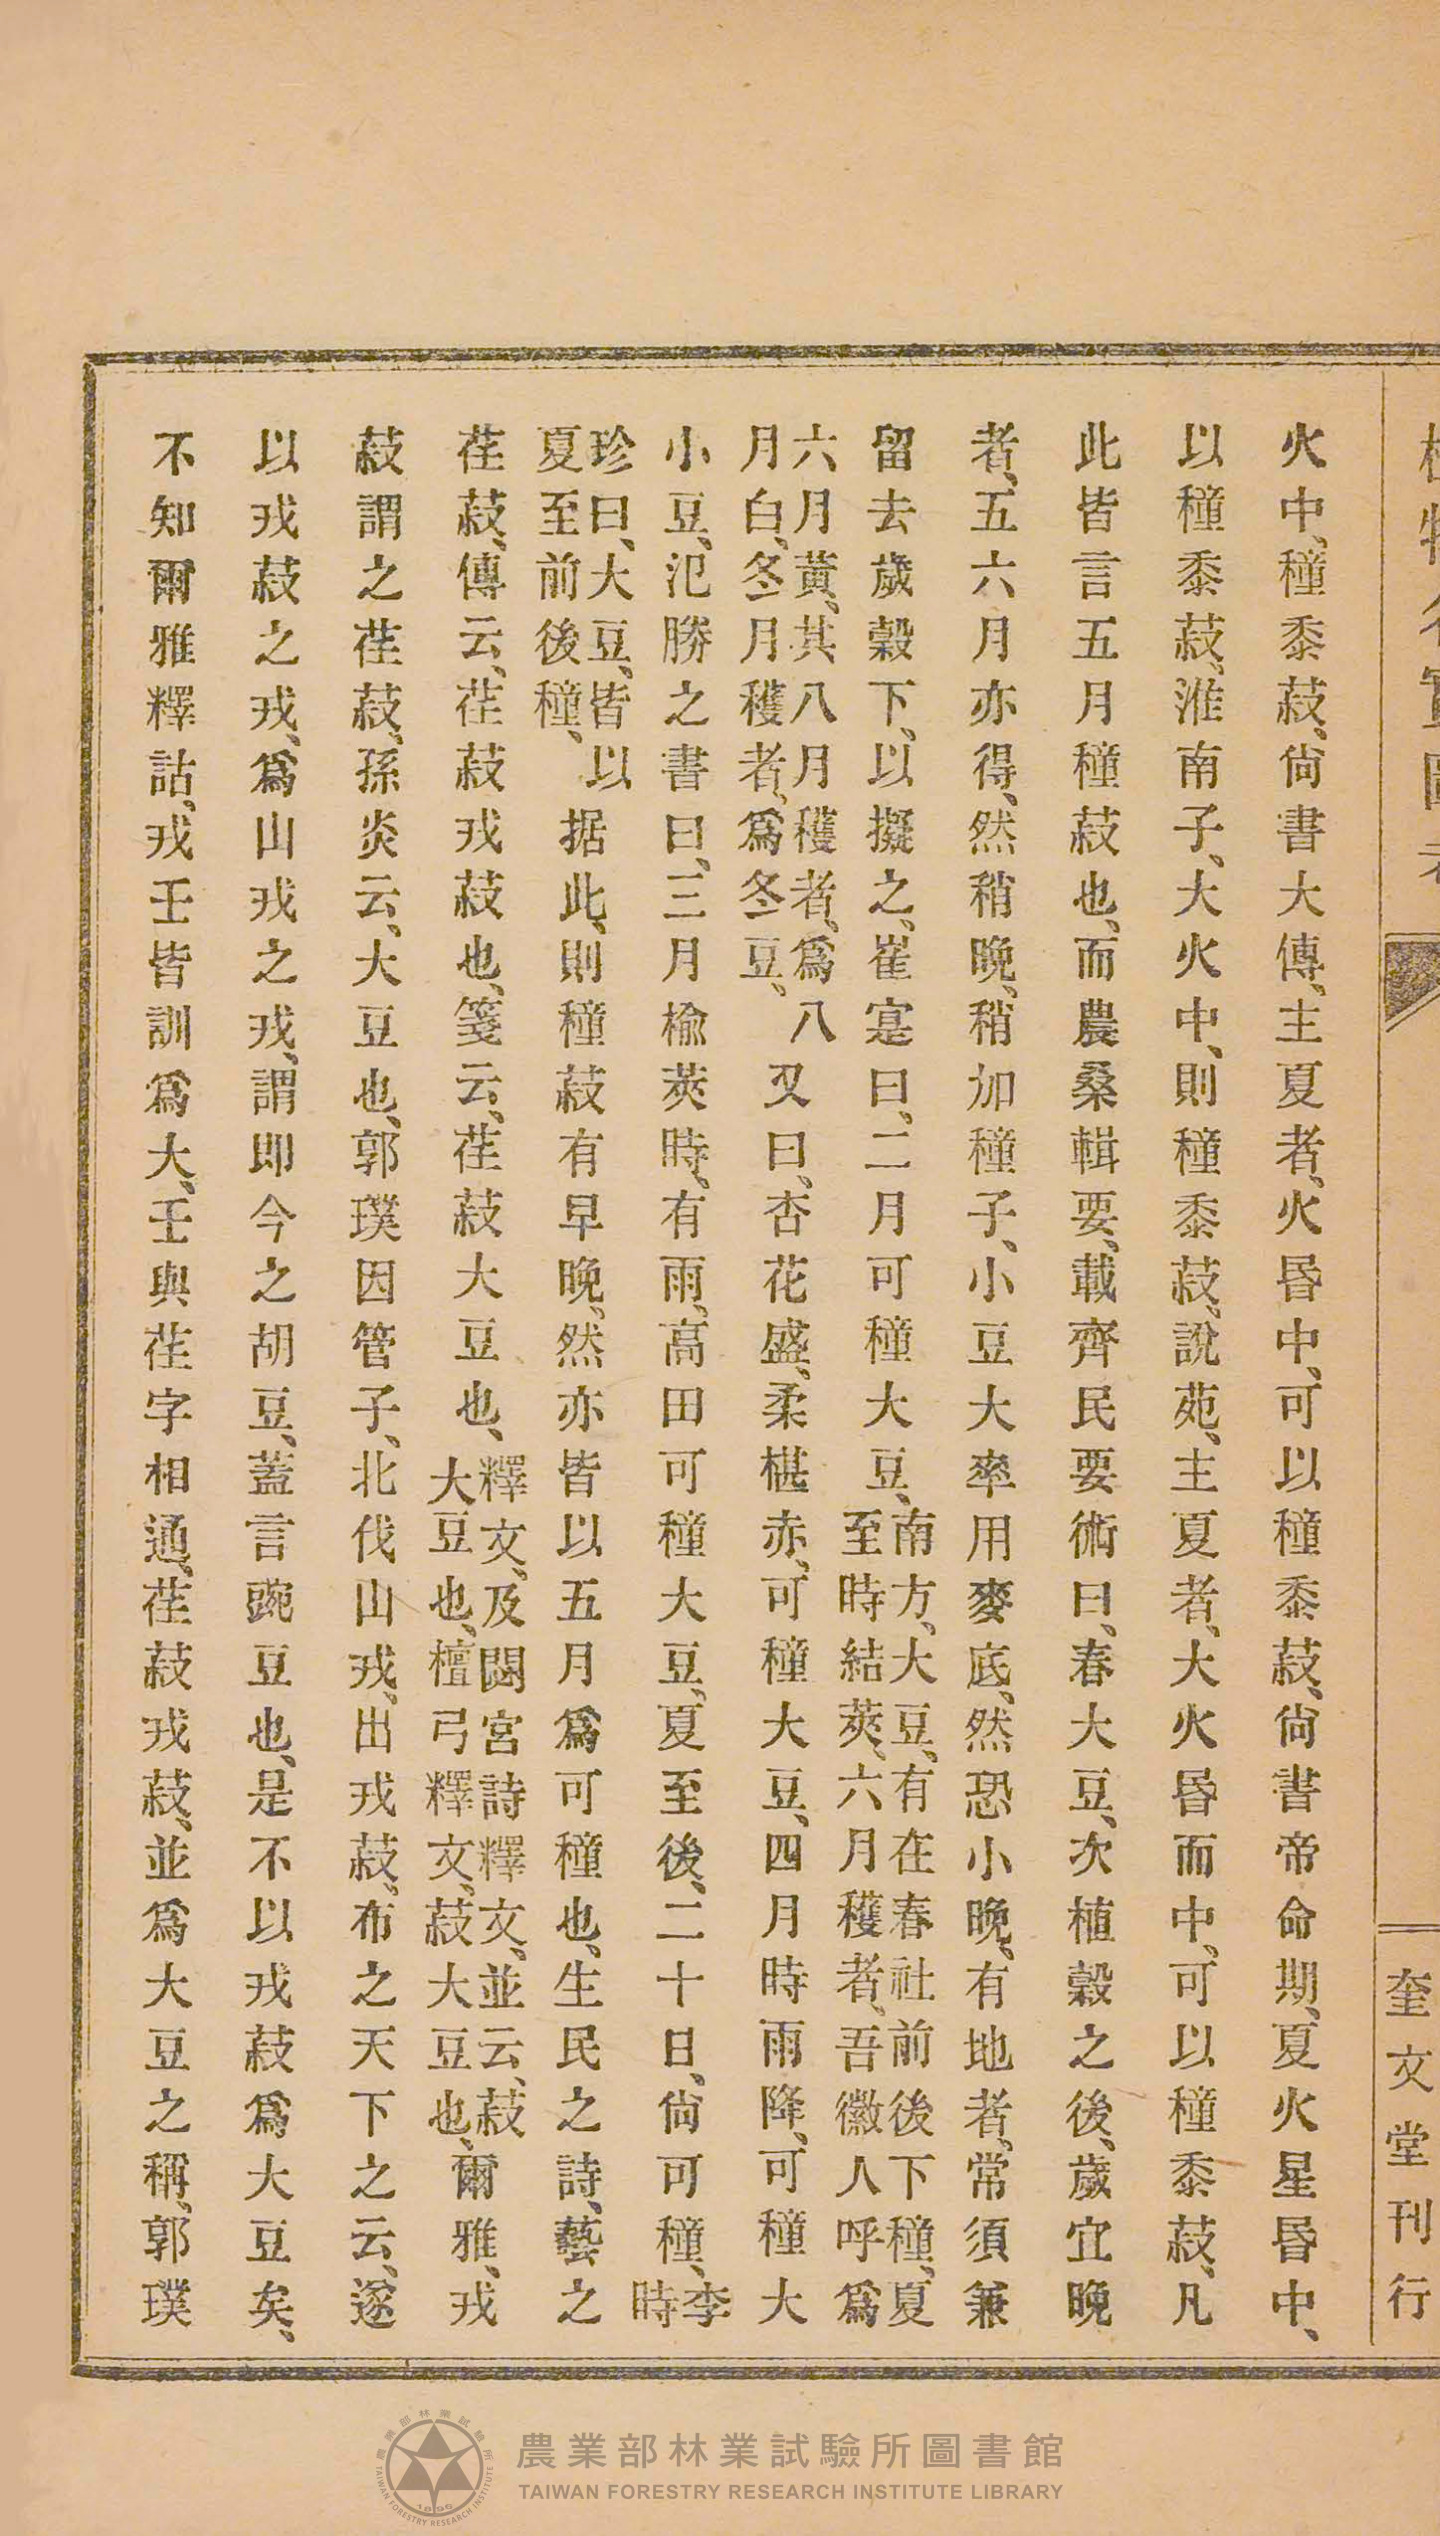 奎文堂刊行
火中、穜黍菽、尙書大傳、主夏者、火昏中、可以穜黍菽、尙書帝命期、夏火星昏中、
以穜黍菽、淮南子、大火中、則穜黍菽、說苑、主夏者、大火昏而中、可以穜黍菽、凡
此皆言五月穜菽也、而農桑輯要、載齊民要術曰、春大豆、次植穀之後、歲宜晚
者、五六月亦得、然稍晚、稍加穜子、小豆大率用麥底、然恐小晚、有地者、常須兼
留去歲穀下、以擬之、崔寔曰、二月可穜大豆、南方、大豆、有在春社前後下穜、夏至時結莢、六月穫者、吾徽人呼爲
六月黃、其八月穫者、爲八月白、冬月穫者、爲冬豆、又曰、杏花盛、柔椹赤、可穜大豆、四月時雨降、可穜大
小豆、氾勝之書曰、三月榆莢時、有雨、高田可穜大豆、夏至後、二十日、尙可穜、李時
珍曰、大豆、皆以夏至前後穜、据此、則穜菽有早晚、然亦皆以五月爲可穜也、生民之詩、藝之
荏菽、傳云、荏菽戎菽也、箋云、荏菽大豆也、釋文、及閟宮詩釋文、並云、菽大豆也、檀弓釋文、菽大豆也、爾雅、戎
菽謂之荏菽、孫炎云、大豆也、郭璞因管子、北伐山戎、出戎菽、布之天下之云、遂
以戎菽之戎、爲山戎之戎、謂卽今之胡豆、蓋言豌豆也、是不以戎菽爲大豆矣、
不知爾雅釋詁、戎壬皆訓爲大、壬與荏字相通、荏菽戎菽、並爲大豆之稱、郭璞
農業部林業試驗所圖書館
TAIWAN FORESTRY RESEARCH INSTITUTE LIBRARY